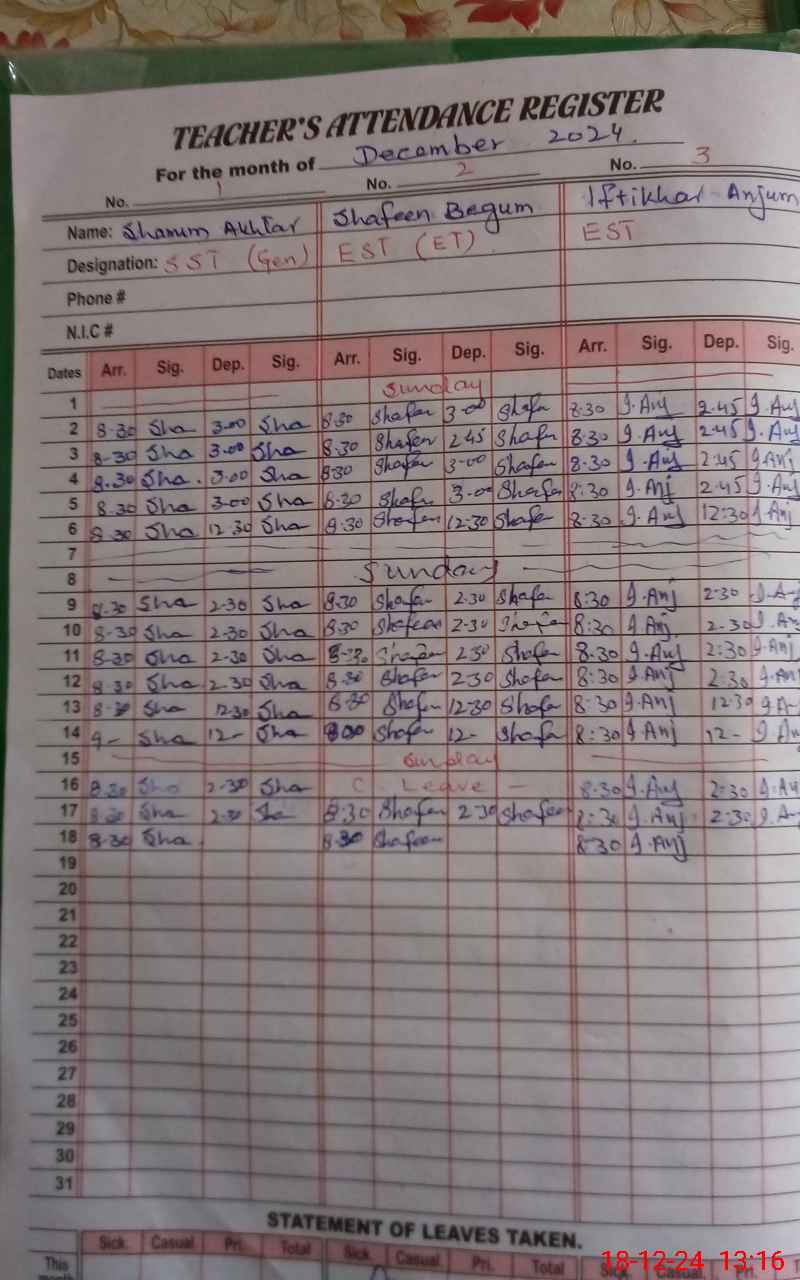 TEACHER'S ATTENDANCE REGISTER
For the month of December 2024.
No. 1 No. 2 No. 3
Name: Shamim Akhtar Shafeen Begum Iftikhar Anjum
Designation: SST (Gen) EST (ET) EST
Phone #
N.I.C #
Dates Arr. Sig. Dep. Sig. Arr. Sig. Dep. Sig. Arr. Sig. Dep. Sig.
1 Sunday
2 8-30 Sha 3-00 Sha 8-30 Shafen 3-00 Shafe 8-30 I.Anj 2.45 I.Anj
3 8-30 Sha 3-00 Sha 8-30 Shafen 2 45 Shafen 8-30 I.Anj 2:45 I.Anj
4 8-30 Sha. 3-00 Sha 8-30 Shafen 3-00 Shafen 8-30 I.Anj 2:45 I.Anj
5 8-30 Sha 3-00 Sha 8-30 Shafe 3-00 Shafen 8:30 I.Anj 2-45 I.Anj
6 8-30 Sha 12-30 Sha 8-30 Shafen 12-30 Shafen 8-30 I.Anj 12:30 I.Anj
7
8 Sunday
9 8-30 Sha 2-30 Sha 8-30 Shafen 2-30 Shafen 8:30 I.Anj 2-30 I.A
10 8-30 Sha 2-30 Sha 8-30 Shafeen 2-30 8:30 I.Anj 2-30 I.A
11 8-30 Sha 2-30 Sha 8-30 2 30 Shafen 8-30 I.Anj 2:30 I.Anj
12 8-30 Sha 2-30 Sha 8-30 Shafen 2-30 Shafen 8:30 I.Anj 2-30 I.An
13 8-30 Sha 12-30 Sha 8-30 Shafen 12-30 Shafen 8:30 I.Anj 12-30 I.A
14 9- Sha 12- Sha 9:00 Shafen 12- Shafen 8:30 I.Anj 12- I.An
15 Sunday
16 8-30 Sha 2-30 Sha C. Leave 8-30 I.Anj 2:30 I.An
17 8-30 Sha 2-30 Sha 8:30 Shafen 2 30 Shafeen 8:30 I.Anj 2:30 I.A
18 8-30 Sha 8-30 Shafeen 8-30 I.Anj
19
20
21
22
23
24
25
26
27
28
29
30
31
STATEMENT OF LEAVES TAKEN.
Sick. Casual Pri. Total Sick. Casual Pri. Total Sick Casual Pri
This
month
18-12-24 13:16